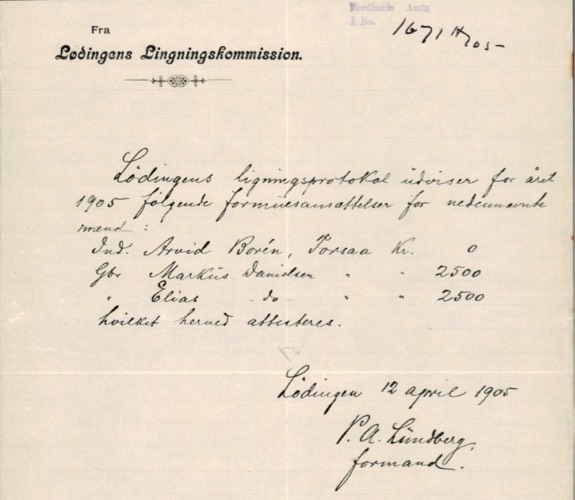 Nordlands Amts
J. No. 1671 4/705-
Fra
Lødingens Lingningskommission.
Lödingens ligningsprotokol udviser for året
1905 følgende formuesansættelser for nedennævnte
mænd:
Ind. Arvid Borén, Torsaa Kr. 0
Gbr Markus Danielsen " " 2500
" Elias do " " 2500
hvilket herved attesteres.
Lödingen 12 april 1905
P. A. Lündberg.
formand.